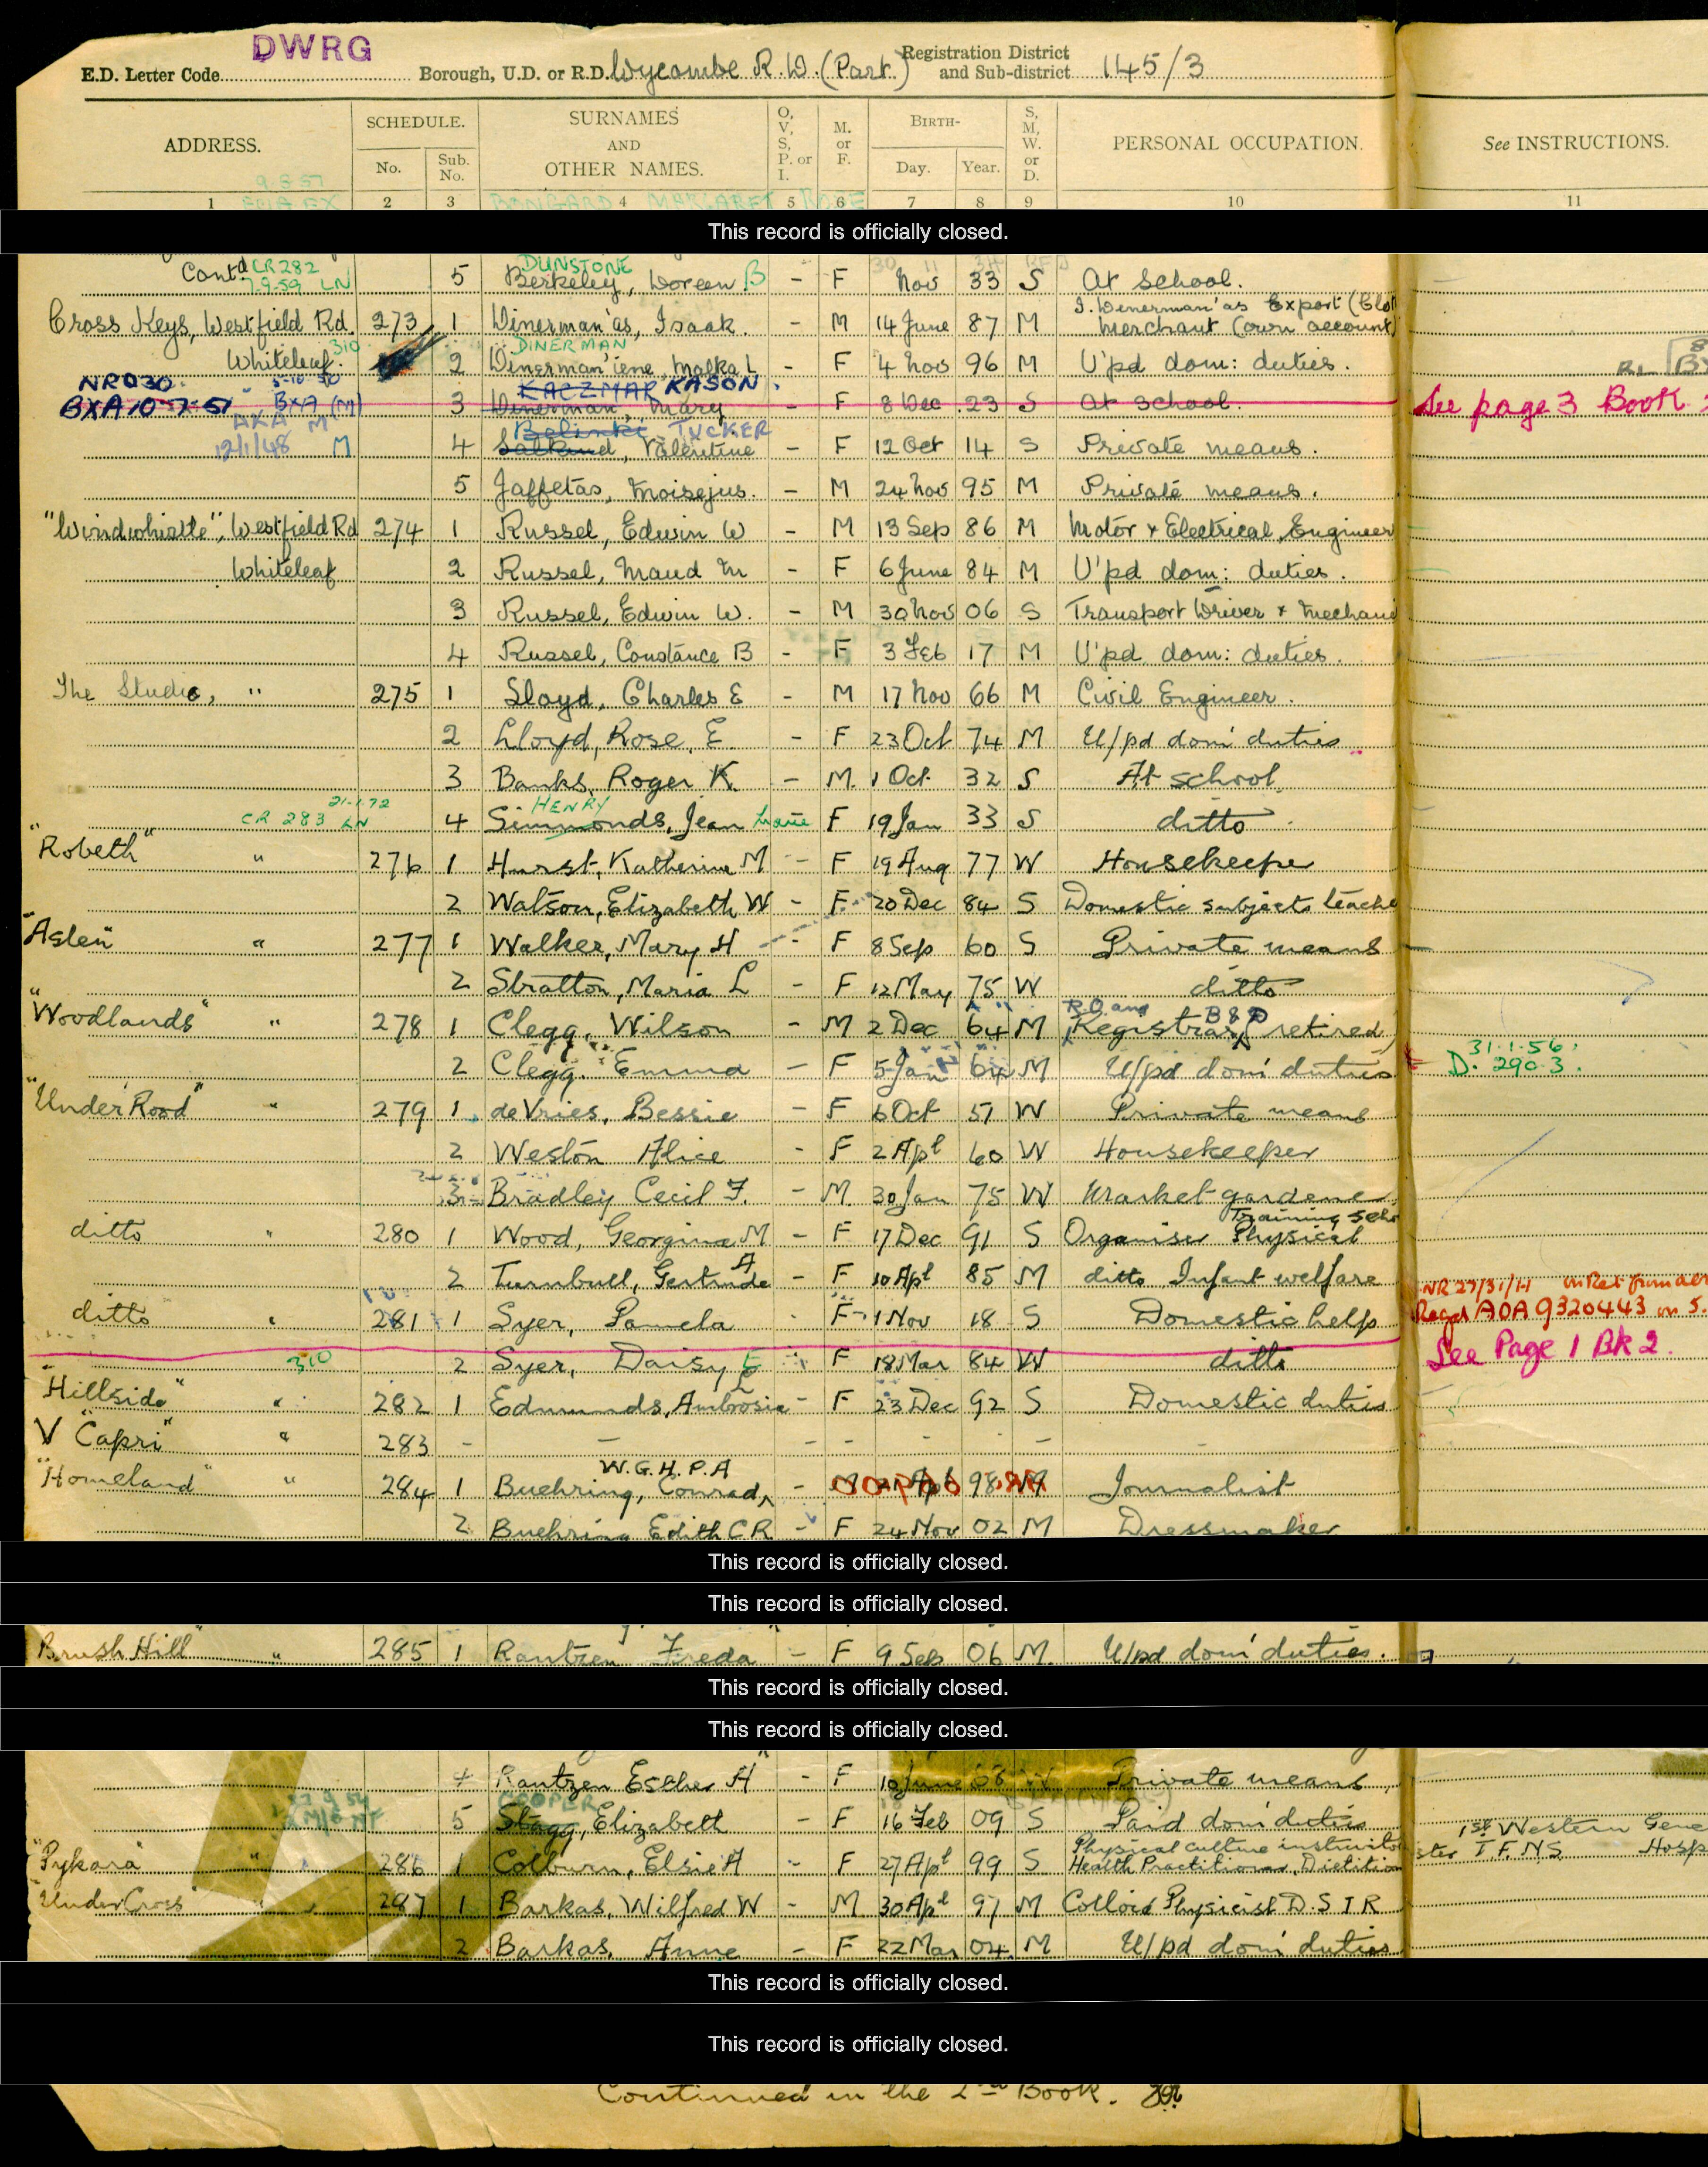 DWRG
E.D. Letter Code Borough, U.D. or R.D. Wycombe R.D. (Part) Registration District and Sub-district 145/3
ADDRESS. SCHEDULE. No. Sub. No. SURNAMES AND OTHER NAMES. O, V, S, P. or I. M. or F. BIRTH- Day. Year. S, M, W. or D. PERSONAL OCCUPATION. See INSTRUCTIONS.
1 2 3 4 5 6 7 8 9 10 11
BONGARD MARGARET ROSE
This record is officially closed.
Contd CR 282 DUNSTONE
7.9.59 LN 5 Berkeley, Doreen B - F Nov 33 S At School.
I. Dinerman'as Export (Clot
Cross Keys, Westfield Rd. 273 1 Dinerman'as, Isaak. - M 14 June 87 M Merchant (own account)
DINERMAN
Whiteleaf. 310 2 Dinerman'iene, Malka L - F 4 Nov 96 M U'pd dom: duties.
NR030 KACZMAR KASON.
BXA 10-7-51 BXA (M) 3 Dinerman, Mary - F 8 Dec 23 S At School. See page 3 Book
Belinki TUCKER
12/1/48 M 4 Salkind, Valentine - F 12 Oct 14 S Private means.
5 Jaffetas, Moisejus. - M 24 Nov 95 M Private means.
"Windwhistle", Westfield Rd 274 1 Russel, Edwin W - M 13 Sep 86 M Motor & Electrical Engineer
Whiteleaf 2 Russel, Maud M - F 6 June 84 M U'pd dom: duties.
3 Russel, Edwin W. - M 30 Nov 06 S Transport Driver & Mechani
4 Russel, Constance B - F 3 Feb 17 M U'pd dom: duties.
The Studio, " 275 1 Lloyd, Charles E - M 17 Nov 66 M Civil Engineer.
2 Lloyd, Rose, E - F 23 Oct 74 M U/pd dom' duties
3 Banks, Roger K. - M. 1 Oct. 32 S At school.
21.1.72 HENRY
CR 283 LN 4 Simmonds, Jean Marie F 19 Jan 33 S ditto
"Robeth" " 276 1 Hurst, Katherine M - F 19 Aug 77 W Housekeeper
2 Watson, Elizabeth W - F 20 Dec 84 S Domestic subjects teache
"Aslen" " 277 1 Walker, Mary H - F 8 Sep 60 S Private means
2 Stratton, Maria L - F 12 May 75 W ditto
R.O. and B & D
"Woodlands" " 278 1 Clegg, Wilson - M 2 Dec 64 M Registrar (retired)
31.1.56.
2 Clegg. Emma - F 5 Jan 64 M U/pd dom' duties D. 290.3.
"Under Rood" " 279 1 de Vries, Bessie - F 6 Oct 57 W Private means
2 Weston Alice - F 2 Apl 60 W Housekeeper
3 Bradley Cecil F. - M 30 Jan 75 W Market gardene
Training Sch
ditto " 280 1 Wood, Georgina M - F 17 Dec 91 S Organiser Physical
2 Turnbull, Gertrude A - F 10 Apl 85 M ditto Infant welfare
NR 27/31/H
ditto " 281 1 Syer, Pamela - F 1 Nov 18 S Domestic help AOA 9320443
310 2 Syer, Daisy E F 18 Mar 84 W ditto See Page 1 Bk 2.
"Hillside" " 282 1 Edmunds, Ambrosia L - F 23 Dec 92 S Domestic duties
V "Capri" " 283 - - - - - - -
W.G.H.P.A
"Homeland" " 284 1 Buehring, Conrad, - M Apl 98 M Journalist
2 Buehring Edith C R - F 24 Nov 02 M Dressmaker
This record is officially closed.
This record is officially closed.
Brush Hill" " 285 1 Rantzen Freda - F 9 Sep 06 M. U/pd dom' duties.
This record is officially closed.
This record is officially closed.
4 Rantzen Esther H - F 10 June 68 W Private means
COOPER
5 Stagg, Elizabeth - F 16 Feb 09 S Paid dom' duties 1st Western Gene
Physical culture instructo
"Pykara" " 286 1 Colburn, Elsie H - F 27 Apl 99 S Health Practitioner, Dietitian T.F.N.S Hosp
"Under Cross" " 287 1 Barkas, Wilfred W - M 30 Apl 97 M Colloid Physicist D.S.I.R
2 Barkas, Anne - F 22 Mar 04 M U/pd dom' duties
This record is officially closed.
This record is officially closed.
Continued in the 2nd Book.